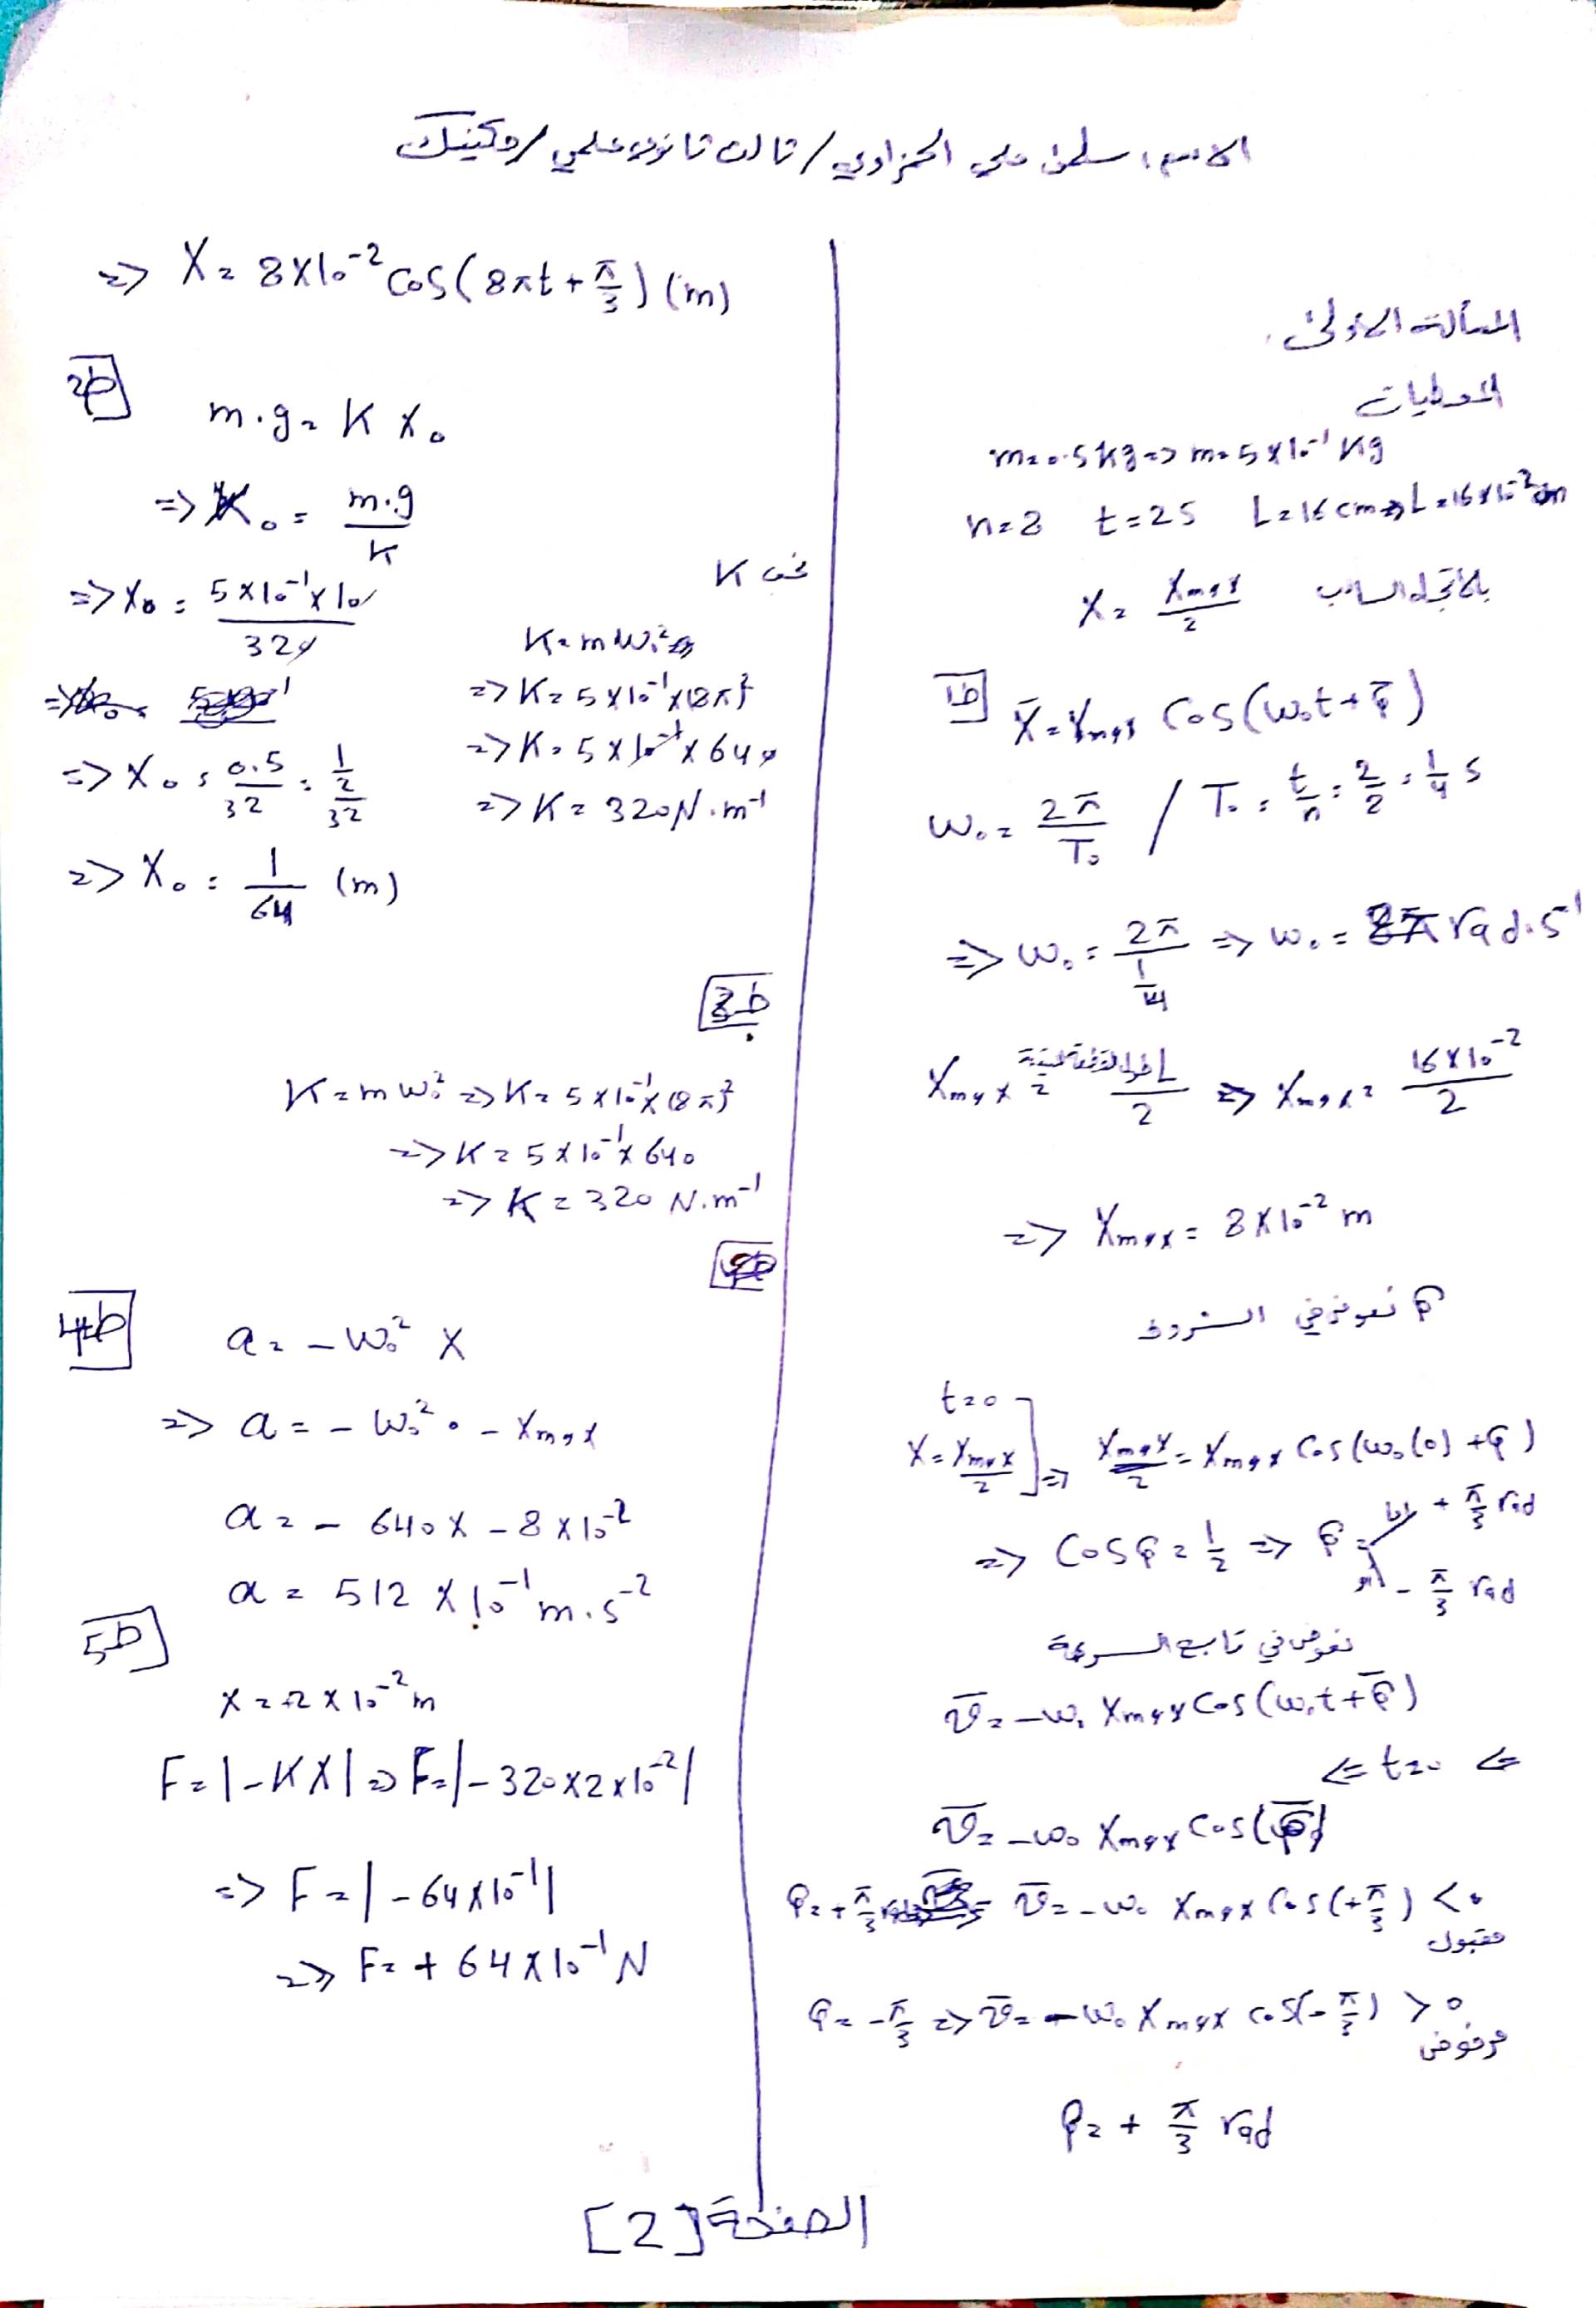 الاسم: سلمى علي الحمزاوي / ثالث ثانوي علمي / مكينيك
المسألة الأولى:
المعطيات
m=0.5kg => m=5×10^-1 kg
n=8 t=2s L=16cm => L=16×10^-2 m
X= Xmax/2 بالاتجاه السالب
ط1
X̄=Xmax Cos(ω₀t+φ̄)
ω₀= 2π/T₀ / T₀= t/n = 2/8 = 1/4 s
=> ω₀= 2π/(1/4) => ω₀= 8π rad.s^-1
Xmax = L طول القطعة المستقيمة/2 => Xmax= 16×10^-2/2
=> Xmax= 8×10^-2 m
φ نعوض في الشروط
t=0
X=Xmax/2 ] => Xmax/2 = Xmax Cos(ω₀(0)+φ)
=> Cosφ= 1/2 => φ= إما + π/3 rad
أو - π/3 rad
نعوض في تابع السرعة
v̄=-ω₀ Xmax Cos(ω₀t+φ̄)
<= t=0 <=
v̄=-ω₀ Xmax Cos(φ̄)
φ=+π/3 rad => v̄=-ω₀ Xmax Cos(+π/3) <0
مقبول
φ=-π/3 => v̄=-ω₀ Xmax cos(-π/3) >0
مرفوض
φ=+ π/3 rad
=> X= 8×10^-2 Cos(8πt+ π/3) (m)
ط2
m.g= K X₀
=> X₀= m.g/K
=> X₀= 5×10^-1×10/320
=> X₀= 0.5/32 = (1/2)/32
=> X₀= 1/64 (m)
K
K=mω₀² =>
=> K=5×10^-1×(8π)²
=> K=5×10^-1×640
=> K=320 N.m^-1
ط3
K=mω₀² => K=5×10^-1×(8π)²
=> K=5×10^-1×640
=> K=320 N.m^-1
ط4
a=-ω₀² X
=> a=-ω₀² . -Xmax
a=-640×-8×10^-2
a=512×10^-1 m.s^-2
ط5
X=+2×10^-2 m
F=|-KX| => F=|-320×2×10^-2|
=> F=|-64×10^-1|
=> F=+64×10^-1 N
الصفحة [2]